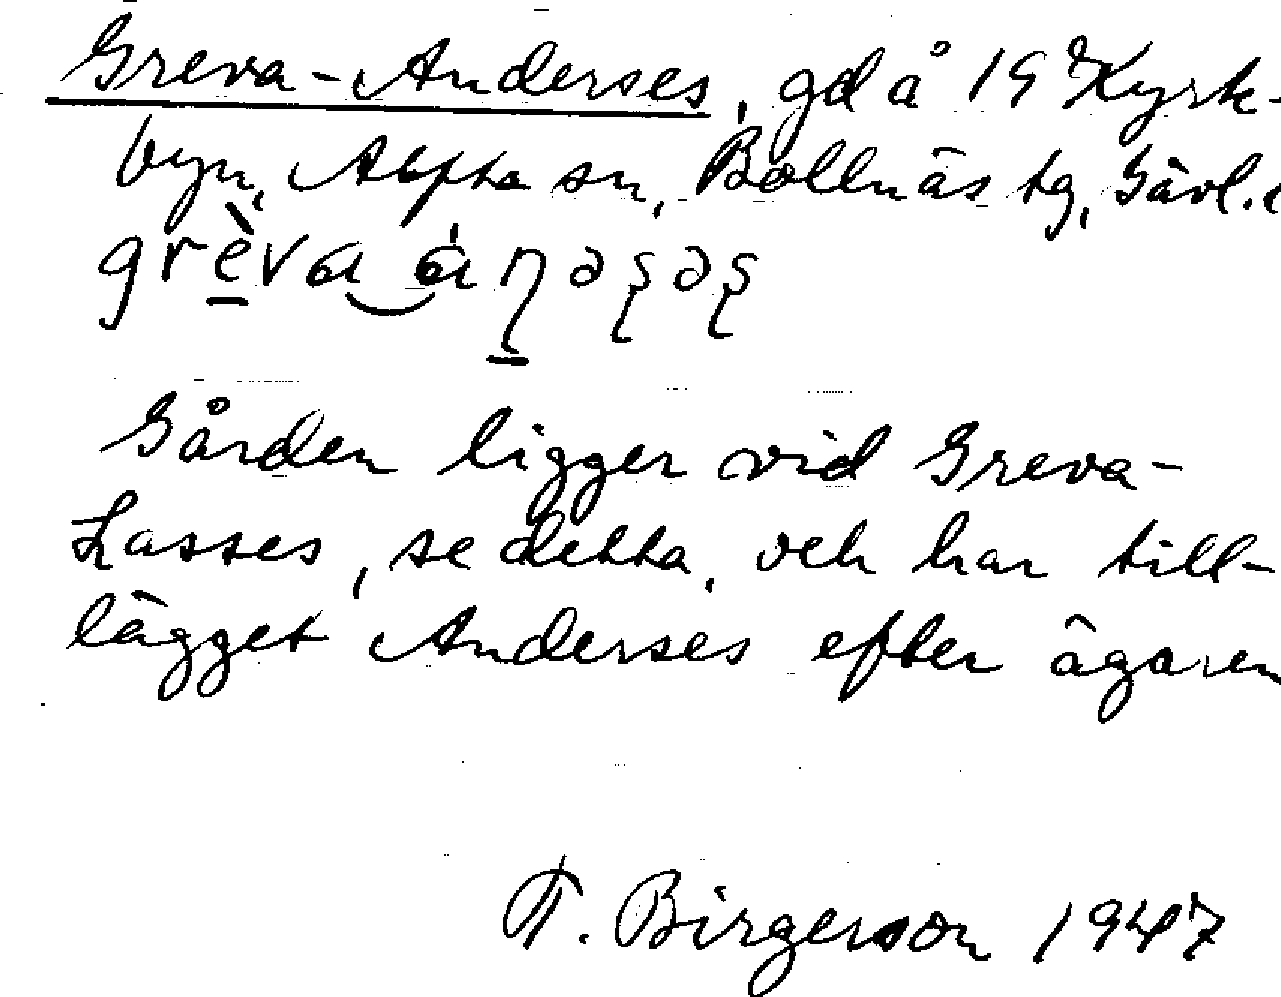 Greva-Anderses, gd å 19 Kyrk-
byn, Alfta sn, Bollnäs tg, Gävl.
grèva á
Gården ligger vid Greva-
Lasses, se detta, och har till-
lägget Anderses efter ägaren
F. Birgerson 1947